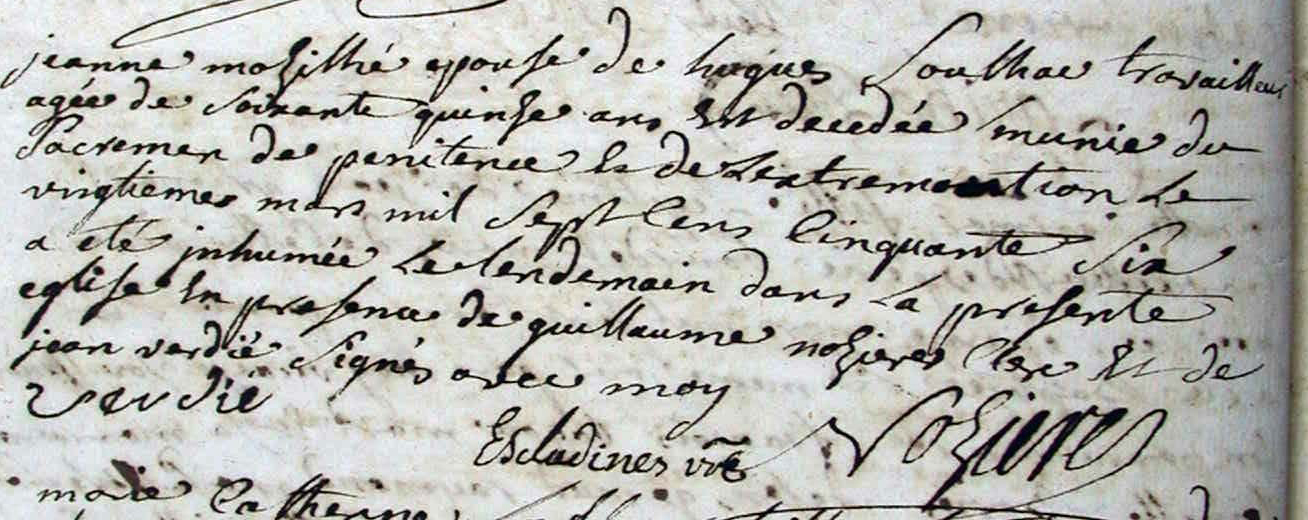 jeanne mozilhié epouse de hugues Soulhac travailleur
agée de Soixante quinse ans Est decedée munie du
Sacremen de penitence Es de Lextremontion Le
vingtieme mars mil Sept Cens Cinquante Six
a eté jnhumée Le lendemain dans La presente
eglise En presence de guillaume nozieres Clerc Et de
jean verdié Signés avec moy
Verdié
Escladines vre Nozieres
marie Catherine